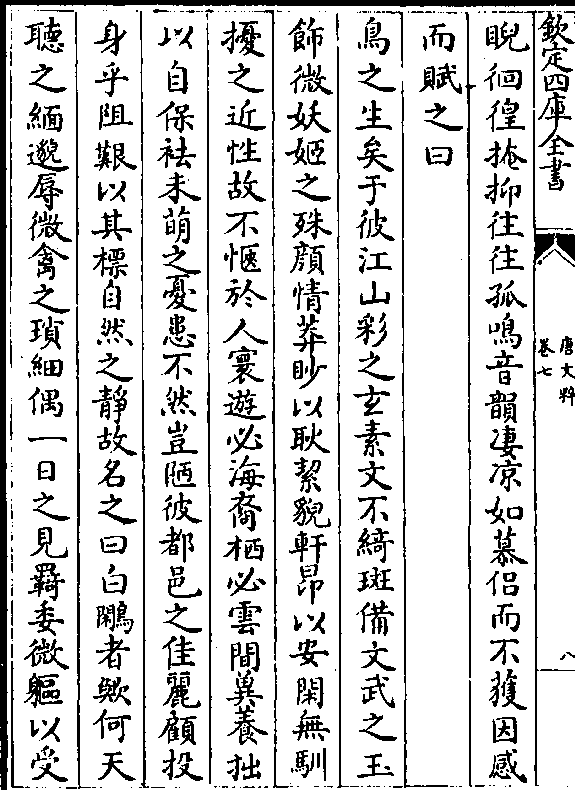 欽定四庫全書
唐文粹
卷七
八
睨徊徨掩抑往往孤鳴音韻凄凉如慕侣而不獲因感
而賦之曰
鳥之生矣于彼江山彩之玄素文不綺斑備文武之玉
飾微妖姬之殊顔情莽眇以耿絜貌軒昂以安閑無馴
擾之近性故不愜於人寰遊必海裔栖必雲間兾養拙
以自保袪未萌之憂患不然豈陋彼都邑之佳麗顧投
身乎阻艱以其標自然之靜故名之曰白鷴者歟何天
聽之緬邈辱微禽之瑣細偶一日之見羇委微軀以受